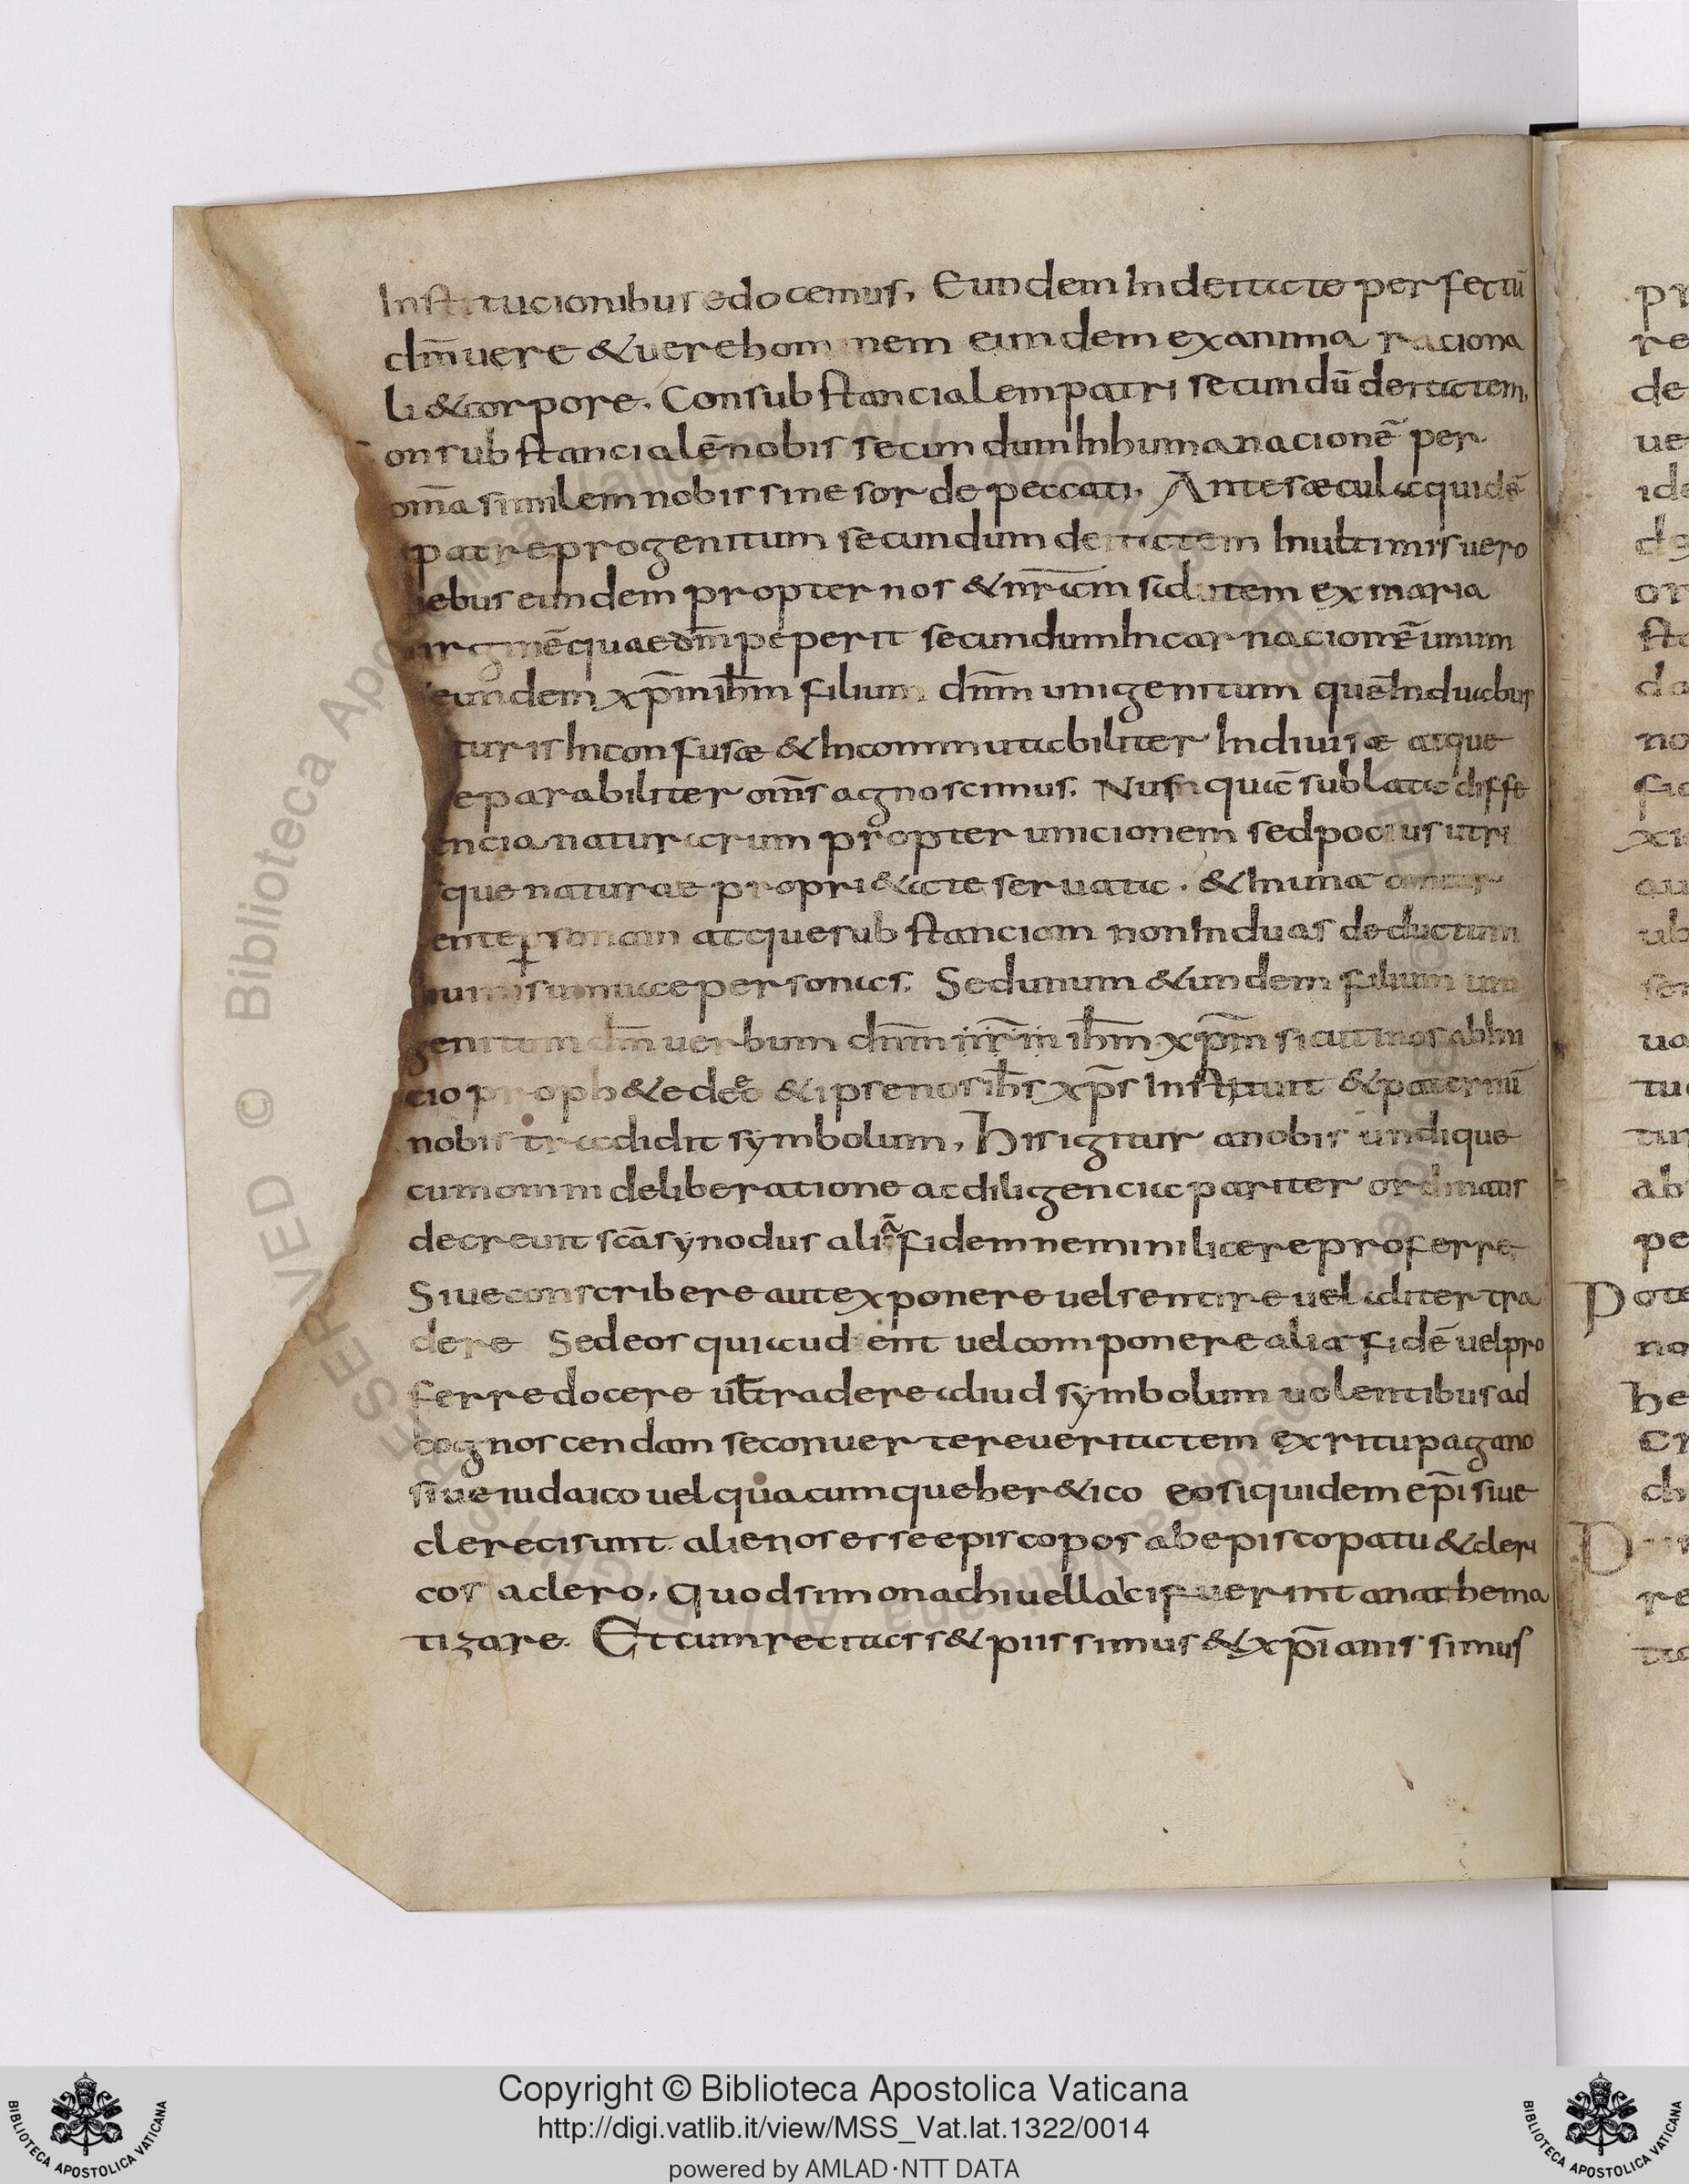 Institucionibus edocemus, Eundem In deitate perfectū
dm̄ uere & uere hominem eundem ex anima raciona
li & corpore. Consubstancialem patri secundū deitatem,
onsubstancialē nobis secundum Inhumanacionē per
om̄a similem nobis sine sorde peccati, Ante sæcula quidē
patre progenitum secundum deitatem Inultimis uero
iebus eundem propter nos & nr̄am salutem ex maria
irginē quae dm̄ peperit secundum Incarnacionē unum
eundem xp̄m ih̄m filium dnm̄ unigenitum quē Induabus
turis Inconfusæ & Incommutabiliter Indiuisæ atque
eparabiliter om̄s agnoscimus. Nusquā sublata diffe
encia naturarum propter unicionem sed pocius utri
que naturae propri&ate seruata. & In una
ente personam atque substanciam non In duas deductum
siuae personas. Sed unum & undem filium uni
genitum dm̄ uerbum dnm̄ nr̄m ih̄m xp̄m sicut nos ab Ini
cio proph&e de eo & ipse nos ih̄s xp̄s Instituit & paternū
nobis tradidit symbolum, His igitur a nobis undique
cum omni deliberatione ac diligencia pariter ordinatis
decreuit sc̄a synodus aliā fidem nemini licere proferre
Siue conscribere aut exponere uel sentire uel aliter tra
dere Sed eos qui audient uel componere aliā fidē uel pro
ferre docere ul̄ tradere aliud symbolum uolentibus ad
cognoscendam se conuertere ueritatem ex ritu pagano
siue iudaico uel quacumque her&ico eos iquidem ep̄i siue
clereci sunt. alienos esse episcopos ab episcopatu & cleri
cos a clero, Quod si monachi uel laici fuerint anathema
tizare. Et cum recitass& piissimus & xp̄ianissimus
pr
re
de
ue
ide
or
sta
da
no
fid
xi
au
ub
ser
ua
tu
tur
ab
pe
Pote
no
he
Cr
ch
D
re
Copyright © Biblioteca Apostolica Vaticana
http://digi.vatlib.it/view/MSS_Vat.lat.1322/0014
powered by AMLAD·NTT DATA
BIBLIOTECA APOSTOLICA VATICANA
BIBLIOTECA APOSTOLICA VATICANA